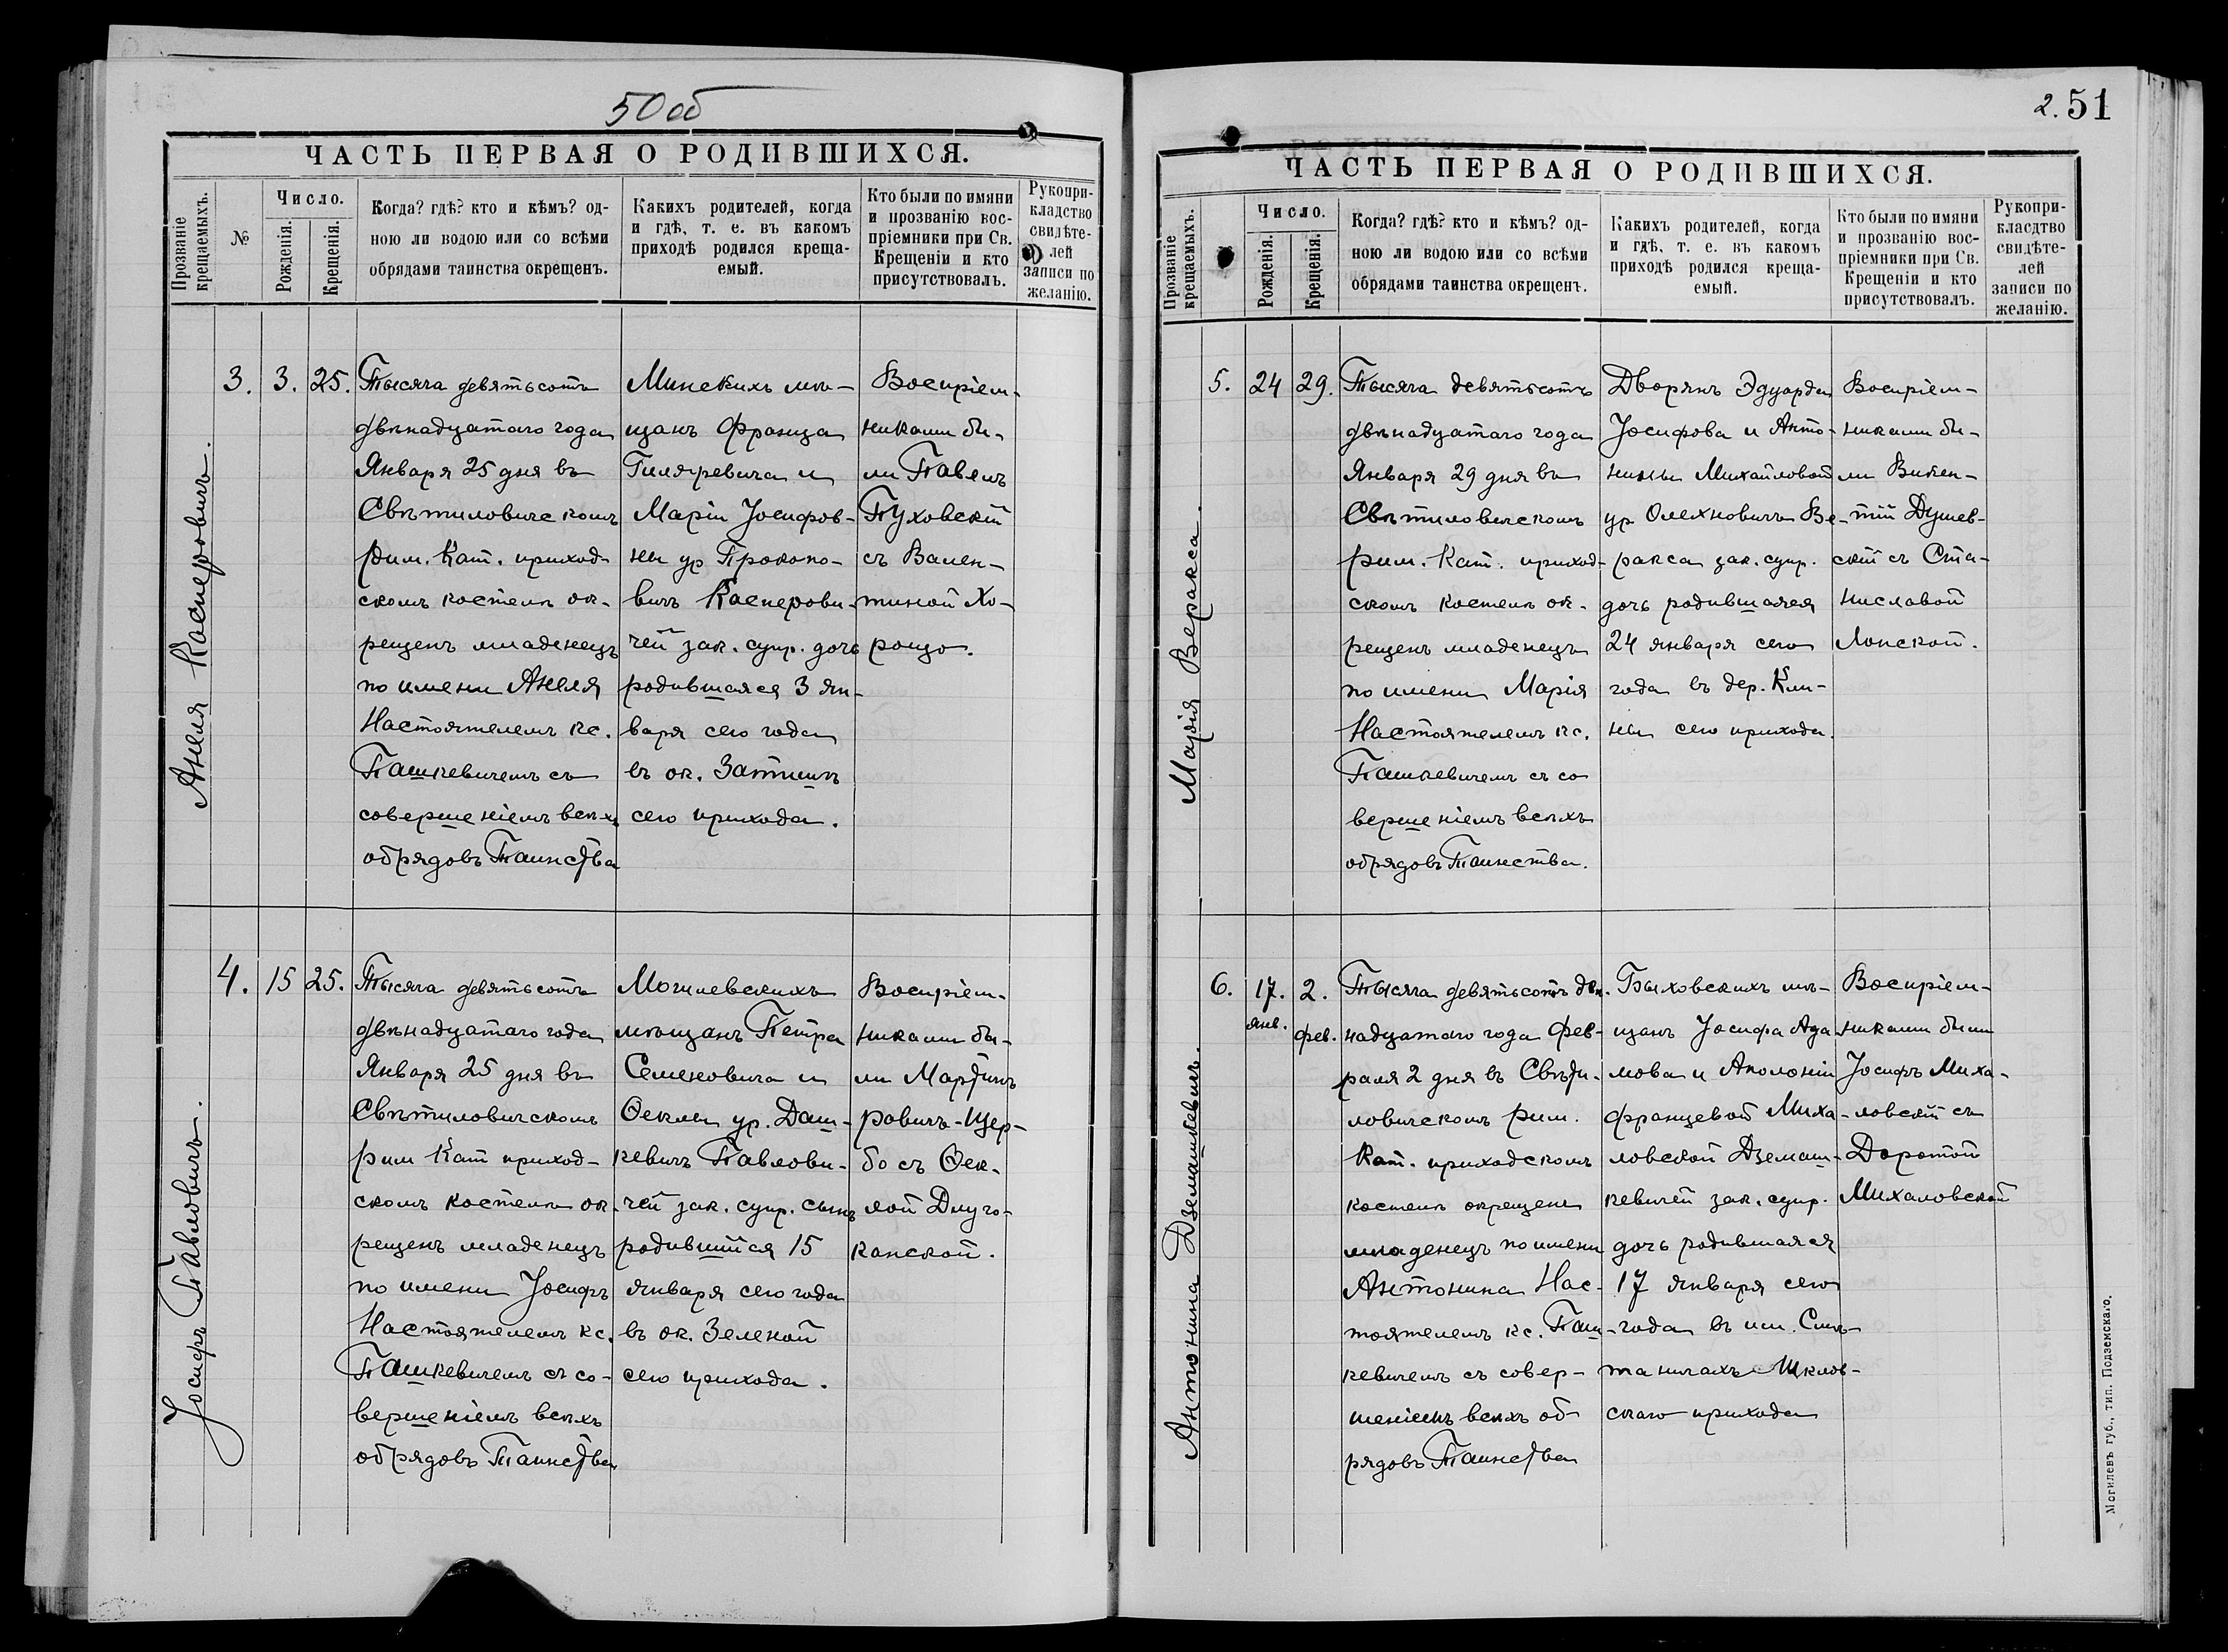 50 об
ЧАСТЬ ПЕРВАЯ О РОДИВШИХСЯ.
Прозваніе крещаемыхъ.
№
Число.
Рожденія.
Крещенія.
Когда? гдѣ? кто и кѣмъ? од-
ною ли водою или со всѣми
обрядами таинства окрещенъ.
Какихъ родителей, когда
и гдѣ, т. е. въ какомъ
приходѣ родился креща-
емый.
Кто были по имяни
и прозванію вос-
пріемники при Св.
Крещеніи и кто
присутствовалъ.
Рукопри-
кладство
свидѣте-
лей
записи по
желанію.
Анеля Касперовичъ.
3.
3.
25.
Тысяча девятьсотъ
двѣнадцатаго года
Января 25 дня въ
Свѣтиловичскомъ
рим. Кат. приход-
скомъ костелѣ ок-
рещенъ младенецъ
по имени Анеля
Настоятелемъ кс.
Пашкевичемъ съ
совершеніемъ всѣхъ
обрядовъ Таинства
Минскихъ мѣ-
щанъ Франца
Гиляревича и
Маріи Іосифов-
ны ур Прокопо-
вичъ Касперови-
чей зак. супр. дочь
родившаяся 3 ян-
варя сего года
въ ок. Затишѣ
сего прихода.
Воспріем-
никами бы-
ли Павелъ
Пуховскій
съ Вален-
тиной Хо-
рощо.
Іосифъ Павловичъ.
4.
15
25.
Тысяча девятьсотъ
двѣнадцатаго года
Января 25 дня въ
Свѣтиловичскомъ
рим Кат приход-
скомъ костелѣ ок-
рещенъ младенецъ
по имени Іосифъ
Настоятелемъ кс.
Пашкевичемъ съ со-
вершеніемъ всѣхъ
обрядовъ Таинства
Могилевскихъ
мѣщанъ Петра
Семеновича и
Ѳеклы ур. Даш-
кевичъ Павлови-
чей зак. супр. сынъ
родившійся 15
января сего года
въ ок. Зеленой
сего прихода.
Воспріем-
никами бы-
ли Мартинъ
ровичъ-Щер-
бо съ Ѳек-
лой Длуго-
канской.
2.51
ЧАСТЬ ПЕРВАЯ О РОДИВШИХСЯ.
Прозваніе крещаемыхъ.
Число.
Рожденія.
Крещенія.
Когда? гдѣ? кто и кѣмъ? од-
ною ли водою или со всѣми
обрядами таинства окрещенъ.
Какихъ родителей, когда
и гдѣ, т. е. въ какомъ
приходѣ родился креща-
емый.
Кто были по имяни
и прозванію вос-
пріемники при Св.
Крещеніи и кто
присутствовалъ.
Рукопри-
класдтво
свидѣте-
лей
записи по
желанію.
Марія Веракса.
5.
24
29.
Тысяча девятьсотъ
двѣнадцатаго года
Января 29 дня въ
Свѣтиловичскомъ
рим. Кат. приход-
скомъ костелѣ ок-
рещенъ младенецъ
по имени Марія
Настоятелемъ кс.
Пашкевичемъ съ со
вершеніемъ всѣхъ
обрядовъ Таинства.
Дворянъ Эдуарда
Іосифова и Анто-
нины Михайловой
ур Олехновичъ Ве-
ракса зак. супр.
дочь родившаяся
24 января сего
года въ дер. Кли-
ны сего прихода.
Воспріем-
никами бы-
ли Викен-
тій Душев-
скій съ Ста-
ниславой
Лонской.
Антонина Дземашкевичъ.
6.
17.
янв.
2.
фев.
Тысяча девятьсотъ двѣ-
надцатаго года Фев-
раля 2 дня въ Свѣти-
ловичскомъ рим.
Кат. приходскомъ
костелѣ окрещенъ
младенецъ по имени
Антонина Нас-
тоятелемъ кс. Паш-
кевичемъ съ совер-
шеніемъ всѣхъ об-
рядовъ Таинства
Быховскихъ мѣ-
щанъ Іосифа Ада
мова и Аполоніи
Францевой Миха-
ловской Дземаш-
кевичей зак. супр.
дочь родившаяся
17 января сего
года въ им. Смѣ-
таничахъ Шклов-
скаго прихода
Воспріем-
никами были
Іосифъ Миха-
ловскій съ
Доротой
Михаловской
Могилевъ губ., тип. Подземскаго.